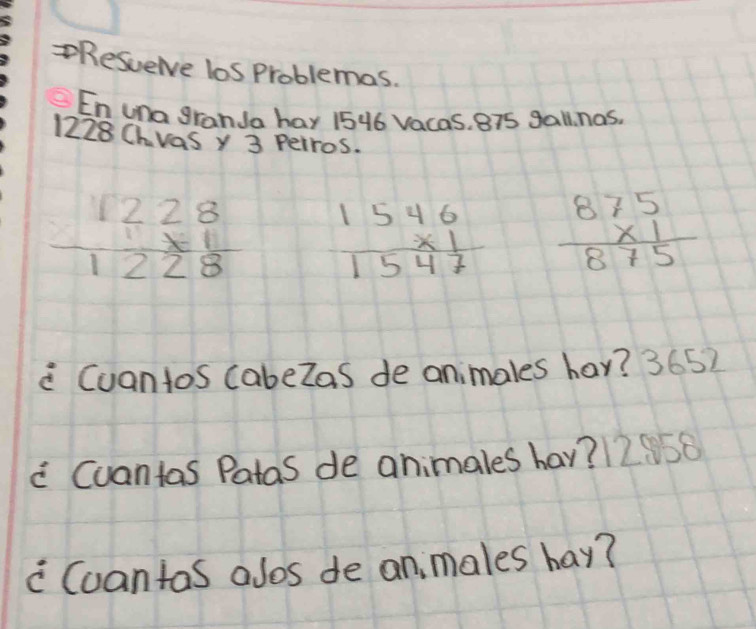 ⇒Resuelve los Problemas.
En una granJa hay 1546 vacas. 875 gallinas.
1228 Chivas y 3 Perros.
1228 1546 875
x1 x1 x1
1228 1547 875
¿ Cuantos cabezas de animales hay? 3652
¿ Cuantas Patas de animales hay? 12858
¿ Cuantas oJos de animales hay?